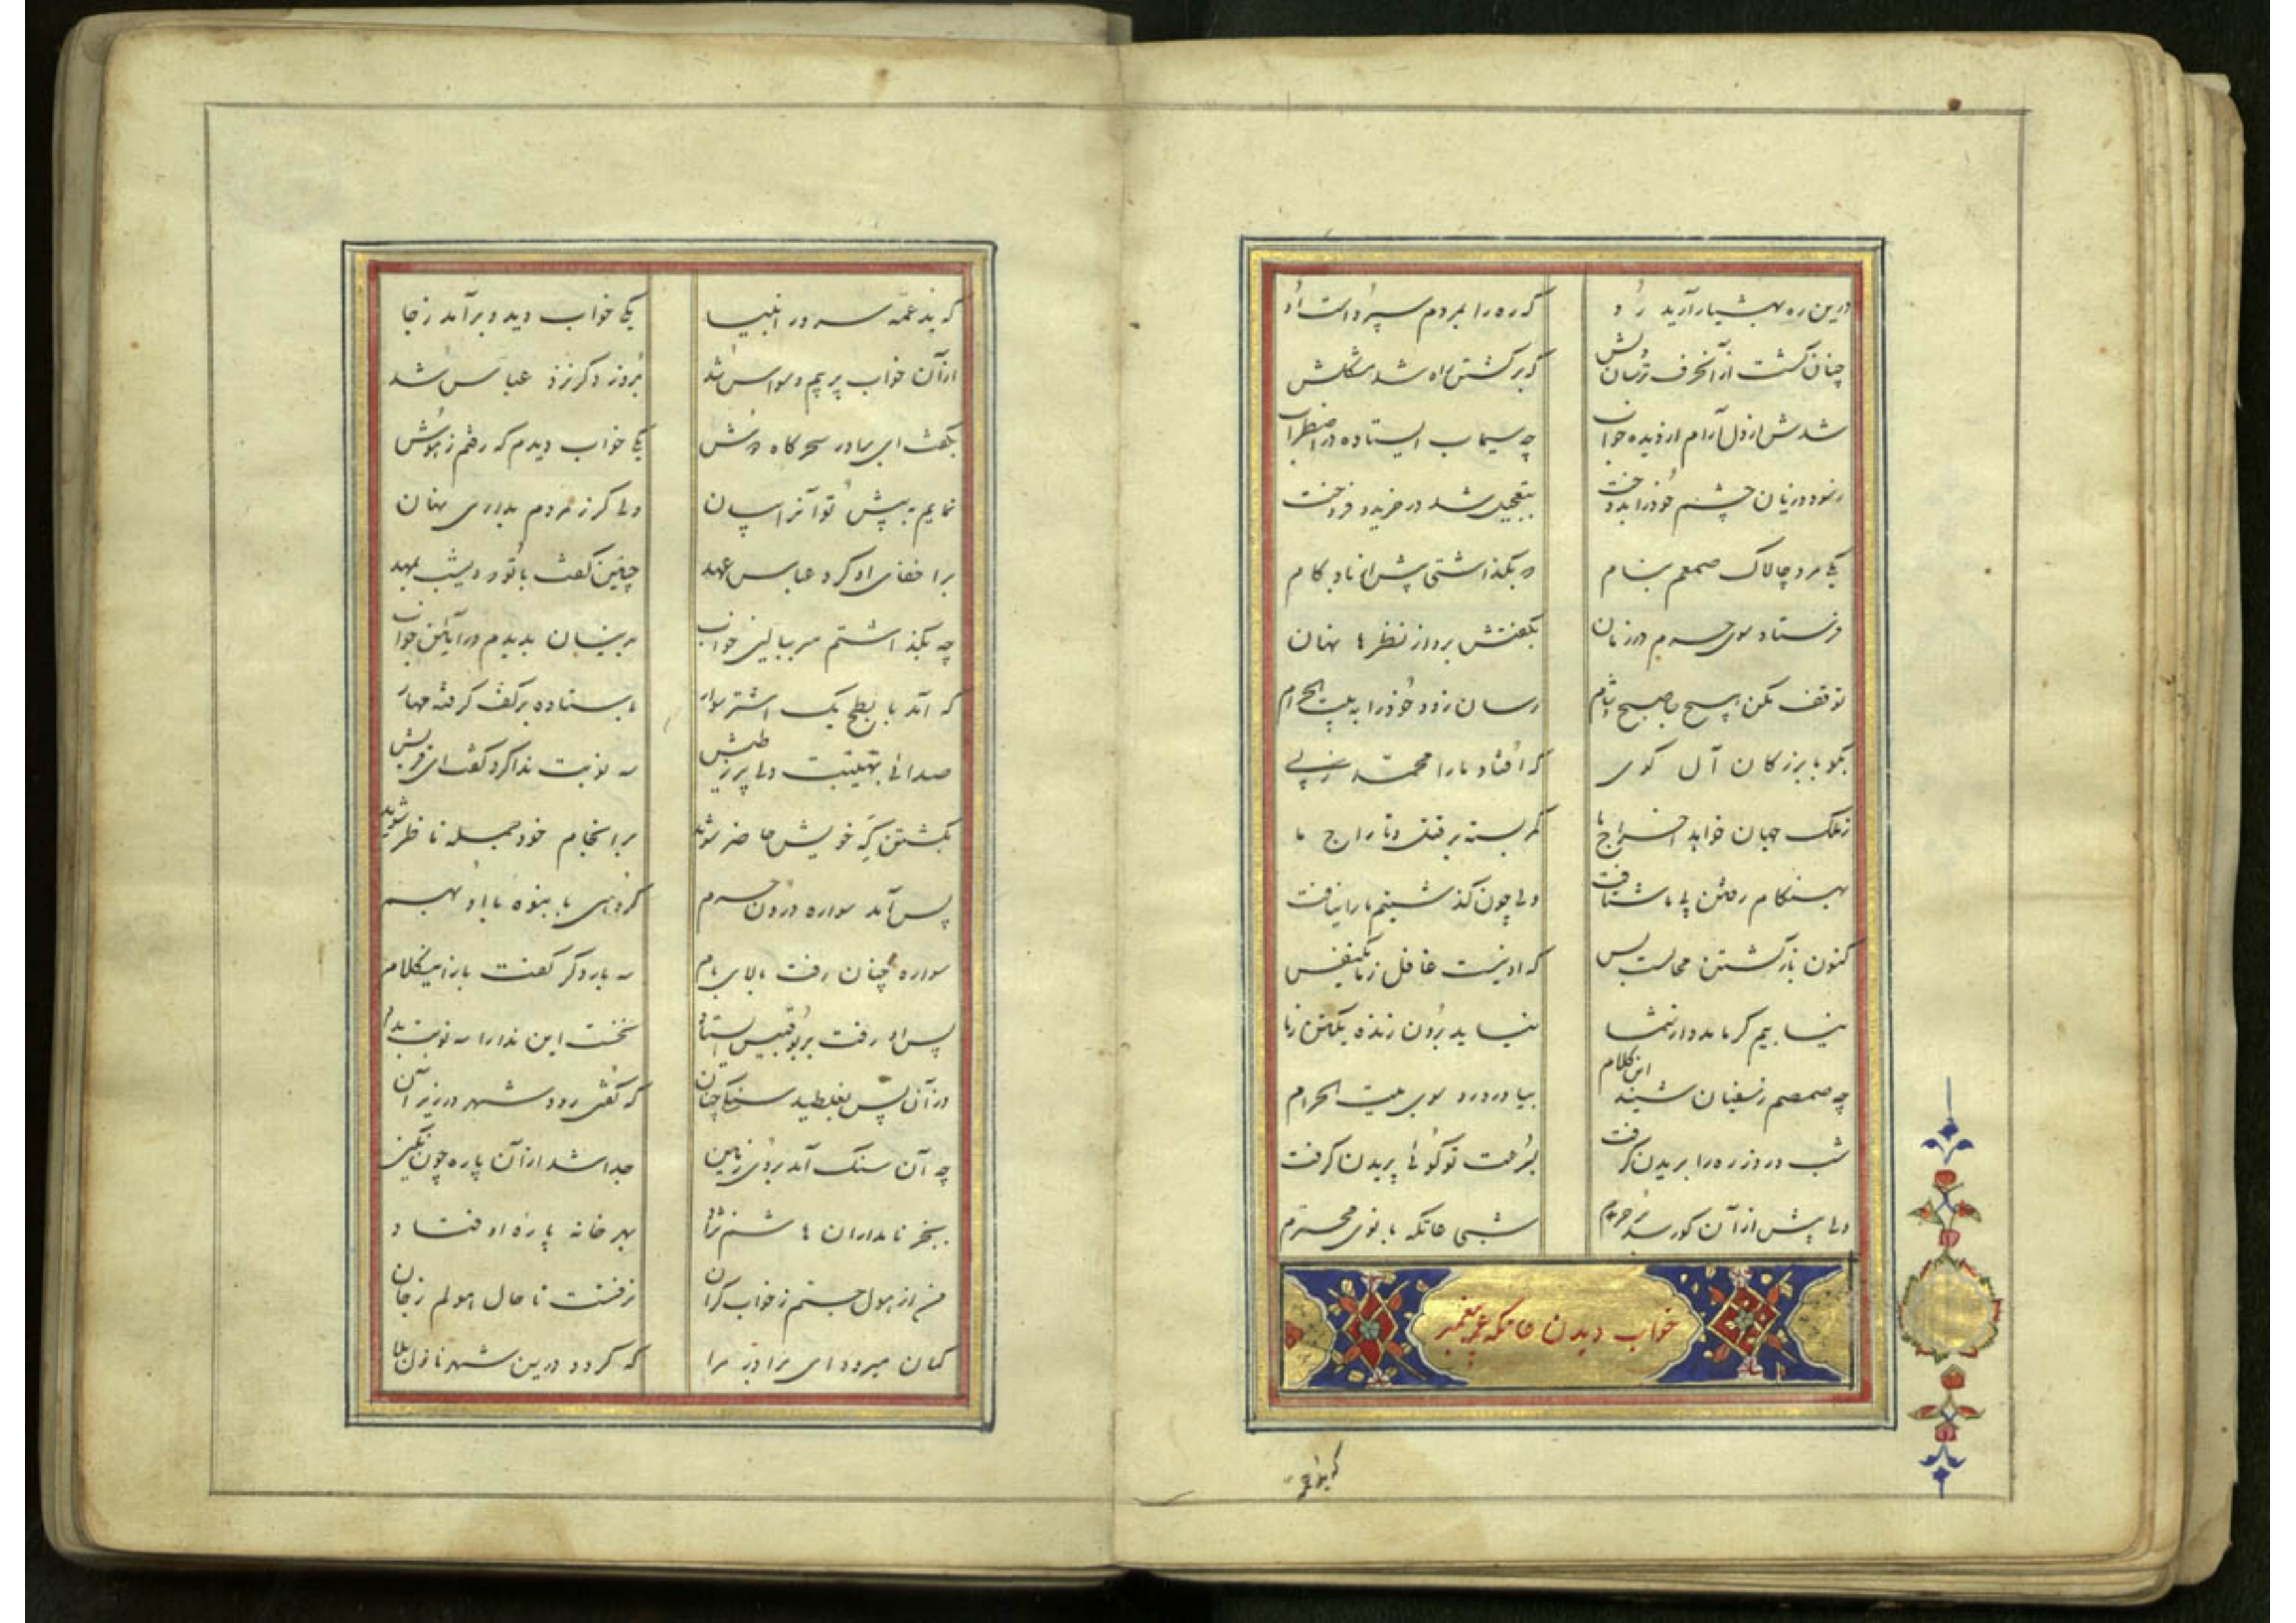 درین ره بهشیار آرید رُو که ره را بمردم سپرداست اُو
چنان گشت از آنحرف ترسان دلش که برگشتن راه شد مشکلش
شدش از دل آرام از دیده خواب چه سیماب ایستاده در اضطراب
ز سود و زیان چشم خود را بدوخت بتعجیل شد در خرید و فروخت
یکی مرد چالاک ضمضم بنام که بگذاشتی پیش از باد گام
فرستاد سوی حرم در زمان بگفتش برو از نظرها نهان
توقف مکن هیچ در صبح و شام رسان زود خود را به بیت الحرام
بگو با بزرگان آن کوی که افتاد ما را محمد ز پی
ز ملک جهان خواهد اخراج ما کمر بسته بر قتل و تاراج ما
بهنگام رفتن پی ما شتافت ولی چون گذشتیم ما را نیافت
کنون بازگشتن محالست بس که او نیست غافل ز ما یکنفس
نیابیم گر ما مدد از شما نیاید برون زنده یکتن ز ما
چه ضمضم ز سفیان شنید این کلام بیاورد رو سوی بیت الحرام
شب و روز ره را بریدن گرفت بسرعت تو گوئی پریدن گرفت
ولی پیش از آن کو رسد در حرم شبی عاتکه بانوی محترم
خواب دیدن عاتکه عمه پیغمبر
که بد عمه
که بد عمّه سرور انبیا یکی خواب دید و برآمد ز جا
از آن خواب پر بیم و وسواس شد بروز دگر نزد عباس شد
بگفت ای برادر سحرگاه دوش یکی خواب دیدم که رفتم ز هوش
نمایم به پیش تو آنرا بیان ولی گر ز مردم بداری نهان
بر اخفای او کرد عباس عهد چنین گفت بانو دیشب بمهد
چه بگذاشتم سر ببالین خواب بدینسان بدیدم در آیین خواب
که آمد بابطح یک اشتر سوار باستاده بر کف گرفته مهار
صدائی بهیئت ولی پر ز طیش سه نوبت ندا کرد گفت ای قریش
بکشتن گه خویش حاضر شوید بر انجام خود جمله ناظر شوید
پس آمد سواره درون حرم گروهی بانبوه با او بهم
سواره چنان رفت بالای بام سه بار دگر گفت باز این کلام
پس او رفت بر بوقبیس ایستاد نخست این ندا را سه نوبت بداد
در آن پس بغلطید سنگی چنان که گفتی رود شهر در زیر آن
چه آن سنگ آمد بروی زمین جدا شد از آن پاره چون نگین
بجز نامداران هاشم نژاد بهر خانه پاره او فتاد
من از هول جستم ز خواب گران نرفتست تا حال هولم ز جان
گمان میرود ای برادر مرا که گردد درین شهر نازل بلا